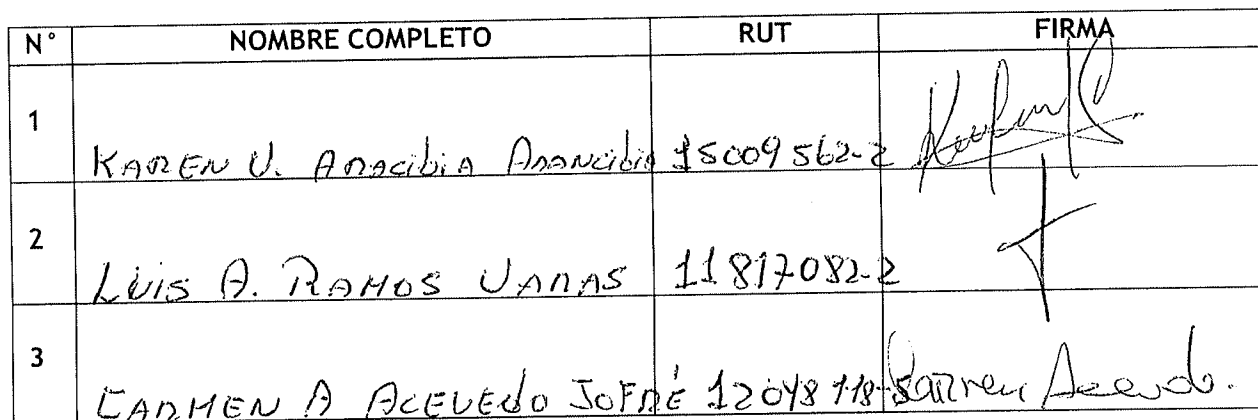 N° NOMBRE COMPLETO RUT FIRMA
1 KAREN V. ARACIBIA ARANCIBIA 15009562-2
2 LUIS A. RAMOS VARAS 11817082-2
3 CARMEN A ACEVEDO JOFRÉ 12048118-5 Carmen Acevedo.